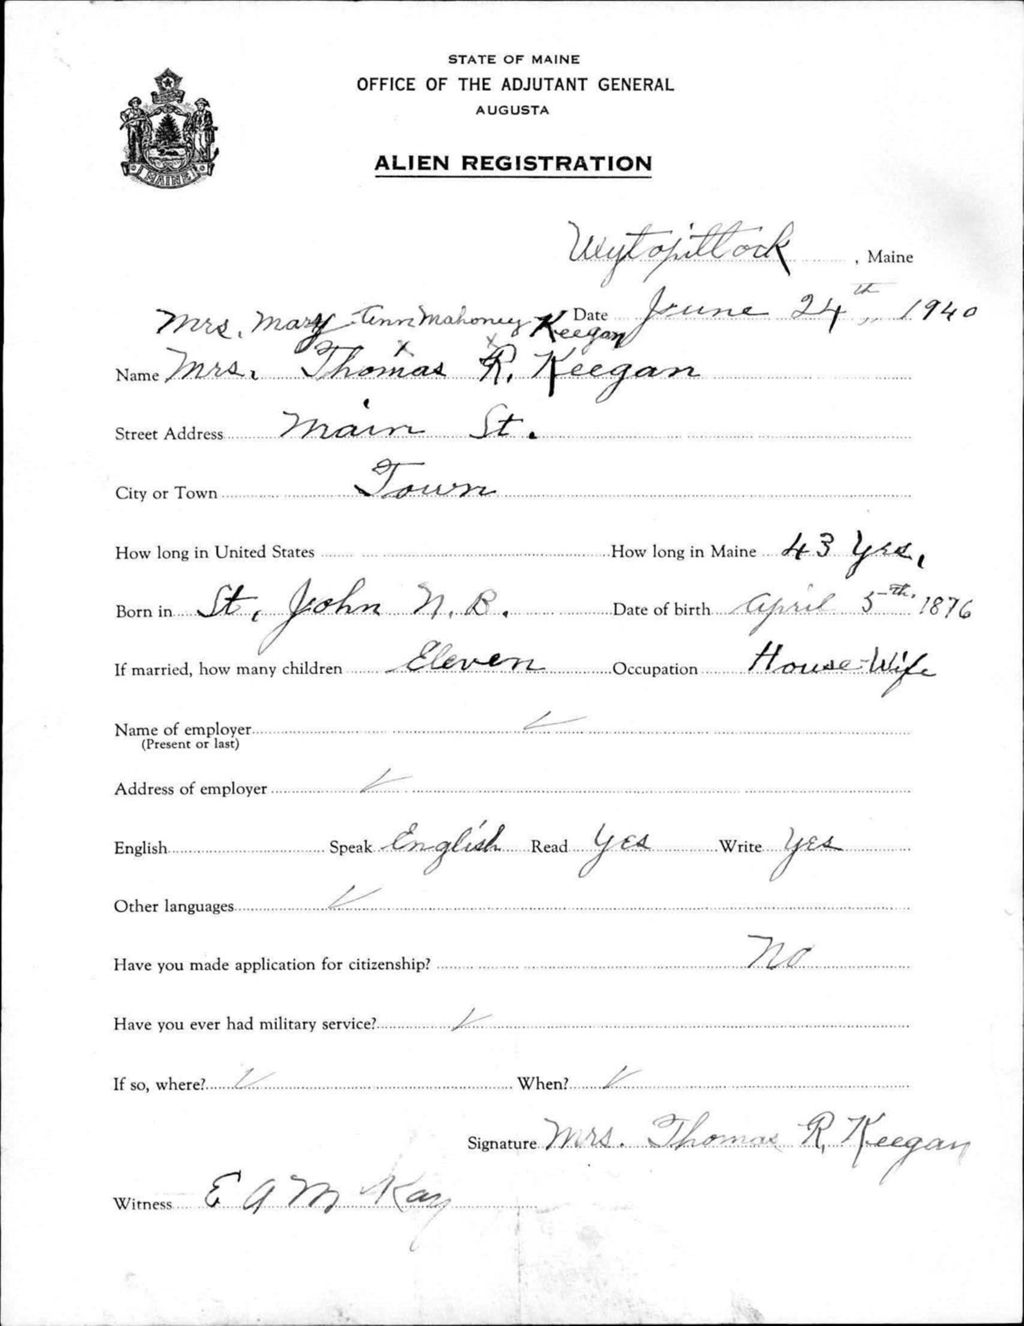 STATE OF MAINE
OFFICE OF THE ADJUTANT GENERAL
AUGUSTA
MAINE
ALIEN REGISTRATION
Wytopitlock, Maine
Mrs. Mary Ann Mahoney Keegan Date June 24th, 1940
Name Mrs. Thomas R. Keegan
Street Address Main St.
City or Town Town
How long in United States How long in Maine 43 Yrs.
Born in St. John N. B. Date of birth April 5th 1876
If married, how many children Eleven Occupation House Wife
Name of employer
(Present or last)
Address of employer
English Speak English Read Yes Write Yes
Other languages
Have you made application for citizenship? No
Have you ever had military service?
If so, where? When?
Signature Mrs. Thomas R. Keegan
Witness E A McKay